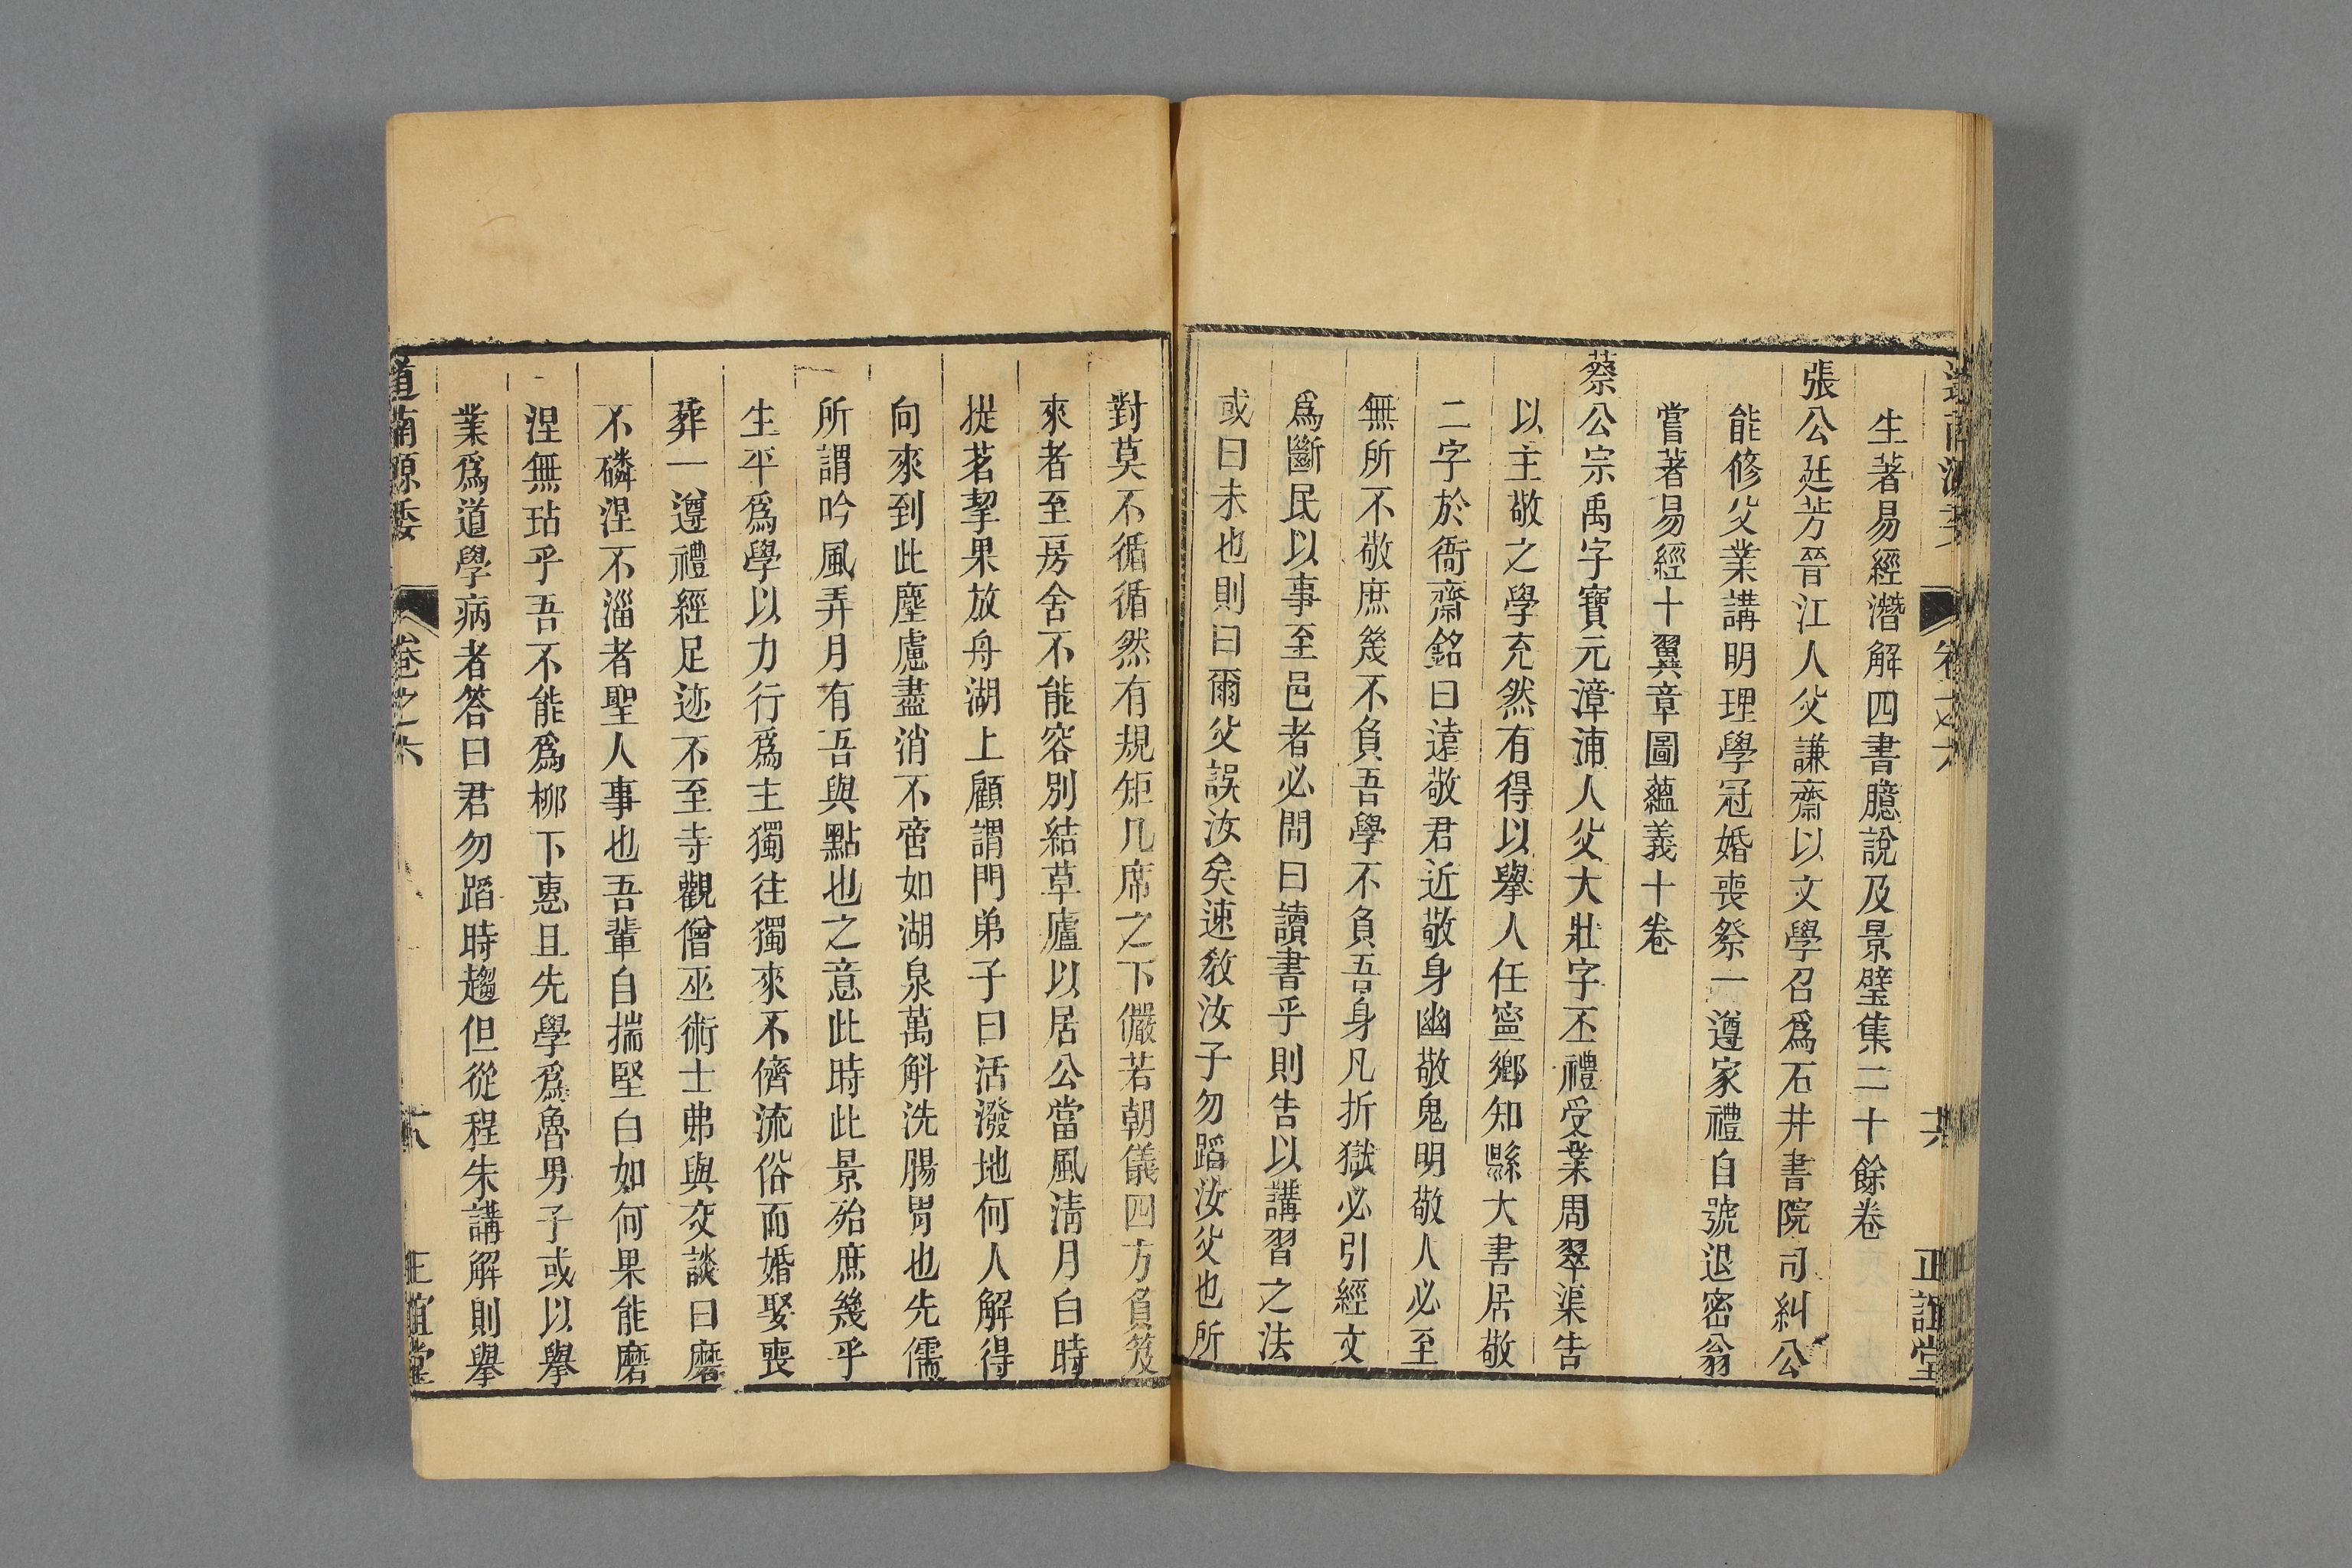 生著易經潛解四書臆說及景璧集二十餘卷
張公廷芳晉江人父謙齋以文學召爲石井書院司糾公
能修父業講明理學冠婚喪祭一遵家禮自號退密翁
嘗著易經十翼章圖蘊義十卷
蔡公宗禹字寶元漳浦人父大壯字丕禮受業周翠渠告
以主敬之學充然有得以舉人任寧鄉知縣大書居敬
二字於衙齋銘曰遠敬君近敬身幽敬鬼明敬人必至
無所不敬庶幾不負吾學不負吾身凡折獄必引經文
爲斷民以事至邑者必問曰讀書乎則告以講習之法
或曰未也則曰爾父誤汝矣速敎汝子勿蹈汝父也所
對莫不循循然有規矩几席之下儼若朝儀四方負笈
來者至房舍不能容別結草廬以居公當風淸月白時
提茗挈果放舟湖上顧謂門弟子曰活潑地何人解得
向來到此塵慮盡消不啻如湖泉萬斛洗腸胃也先儒
所謂吟風弄月有吾與點也之意此時此景殆庶幾乎
生平爲學以力行爲主獨往獨來不儕流俗而婚娶喪
葬一遵禮經足迹不至寺觀僧巫術士弗與交談曰磨
不磷涅不淄者聖人事也吾輩自揣堅白如何果能磨
涅無玷乎吾不能爲柳下惠且先學爲魯男子或以擧
業爲道學病者答曰君勿蹈時趨但從程朱講解則擧
道南源委
卷之六
正誼堂